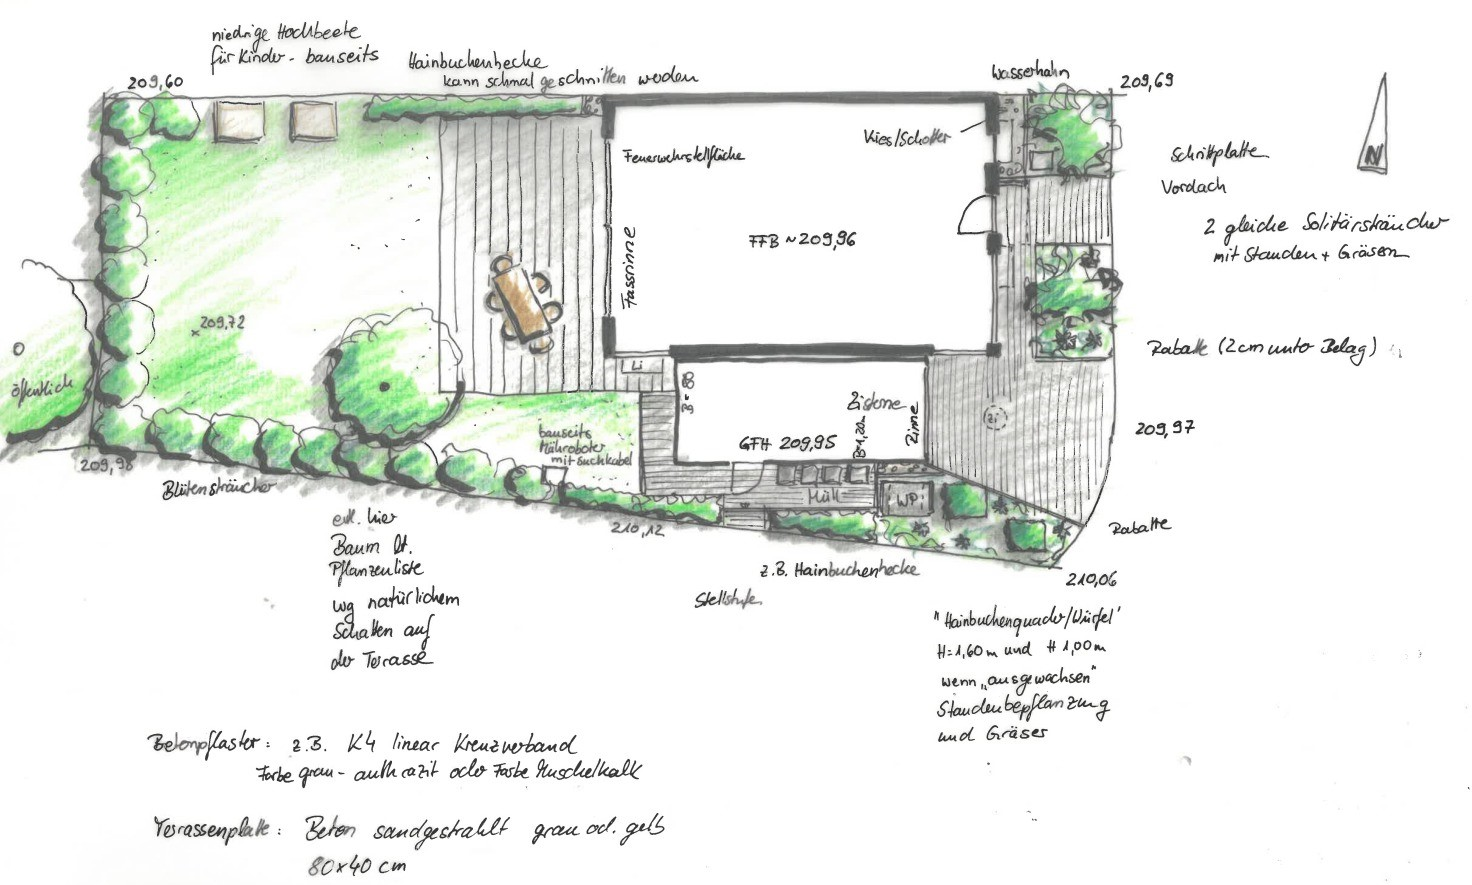 niedrige Hochbeete
für Kinder - bauseits
Hainbuchenhecke
kann schmal geschnitten werden
209,60
Wasserhahn
209,69
Kies/Schotter
Feuerwehrstellfläche
N
Schrittplatte
Vordach
2 gleiche Solitärsträucher
mit Stauden + Gräsern
FFB ~209,96
Fassrinne
209,72
öffentlich
Rabatte (2cm unter Belag)
Li
Zisterne
Rinne
Zi
GFH 209,95
209,97
bauseits
Mähroboter
mit Suchkabel
209,98
Blütensträucher
Müll
WP
210,12
Rabatte
evtl. hier
Baum lt.
Pflanzenliste
wg natürlichem
Schatten auf
der Terrasse
z.B. Hainbuchenhecke
Stellstufe
210,06
"Hainbuchenquader/Würfel'
H=1,60m und H 1,00m
wenn „ausgewachsen"
Staudenbepflanzung
und Gräser
Betonpflaster: z.B. K4 linear Kreuzverband
Farbe grau-anthrazit oder Farbe Muschelkalk
Terrassenplatte: Beton sandgestrahlt grau od. gelb
80x40 cm